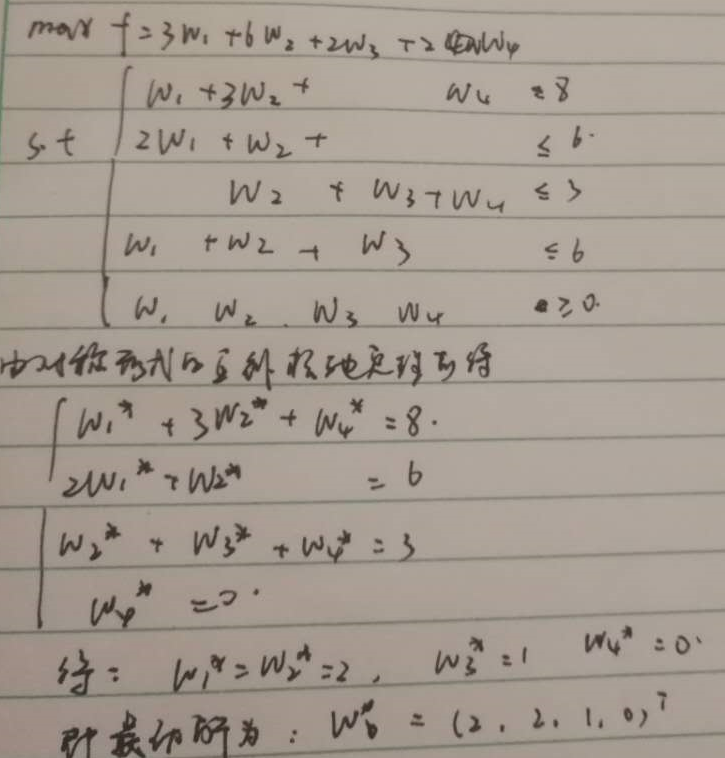 max f = 3W₁ + 6W₂ + 2W₃ + 2W₄
W₁ + 3W₂ + W₄ ≤ 8
s.t 2W₁ + W₂ + ≤ 6.
W₂ + W₃ + W₄ ≤ 3
W₁ + W₂ + W₃ ≤ 6
W₁ W₂ W₃ W₄ ≥ 0.
由对称形式的互补松弛定理可得
W₁* + 3W₂* + W₄* = 8.
2W₁* + W₂* = 6
W₂* + W₃* + W₄* = 3
W₄* = 0.
得: W₁* = W₂* = 2, W₃* = 1 W₄* = 0.
即最优解为: W* = (2, 2, 1, 0)ᵀ